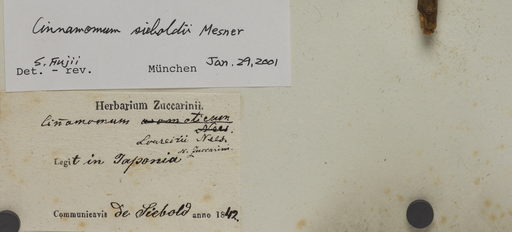 Cinnamomum sieboldii Mesner
S. Fujii
Det. - rev. München Jan. 29, 2001
Herbarium Zuccarinii.
Cinnamomum aromaticum
Nees.
Loureirii Nees.
Legit in Japonia H. Zuccarini.
Communicavit de Siebold anno 1842